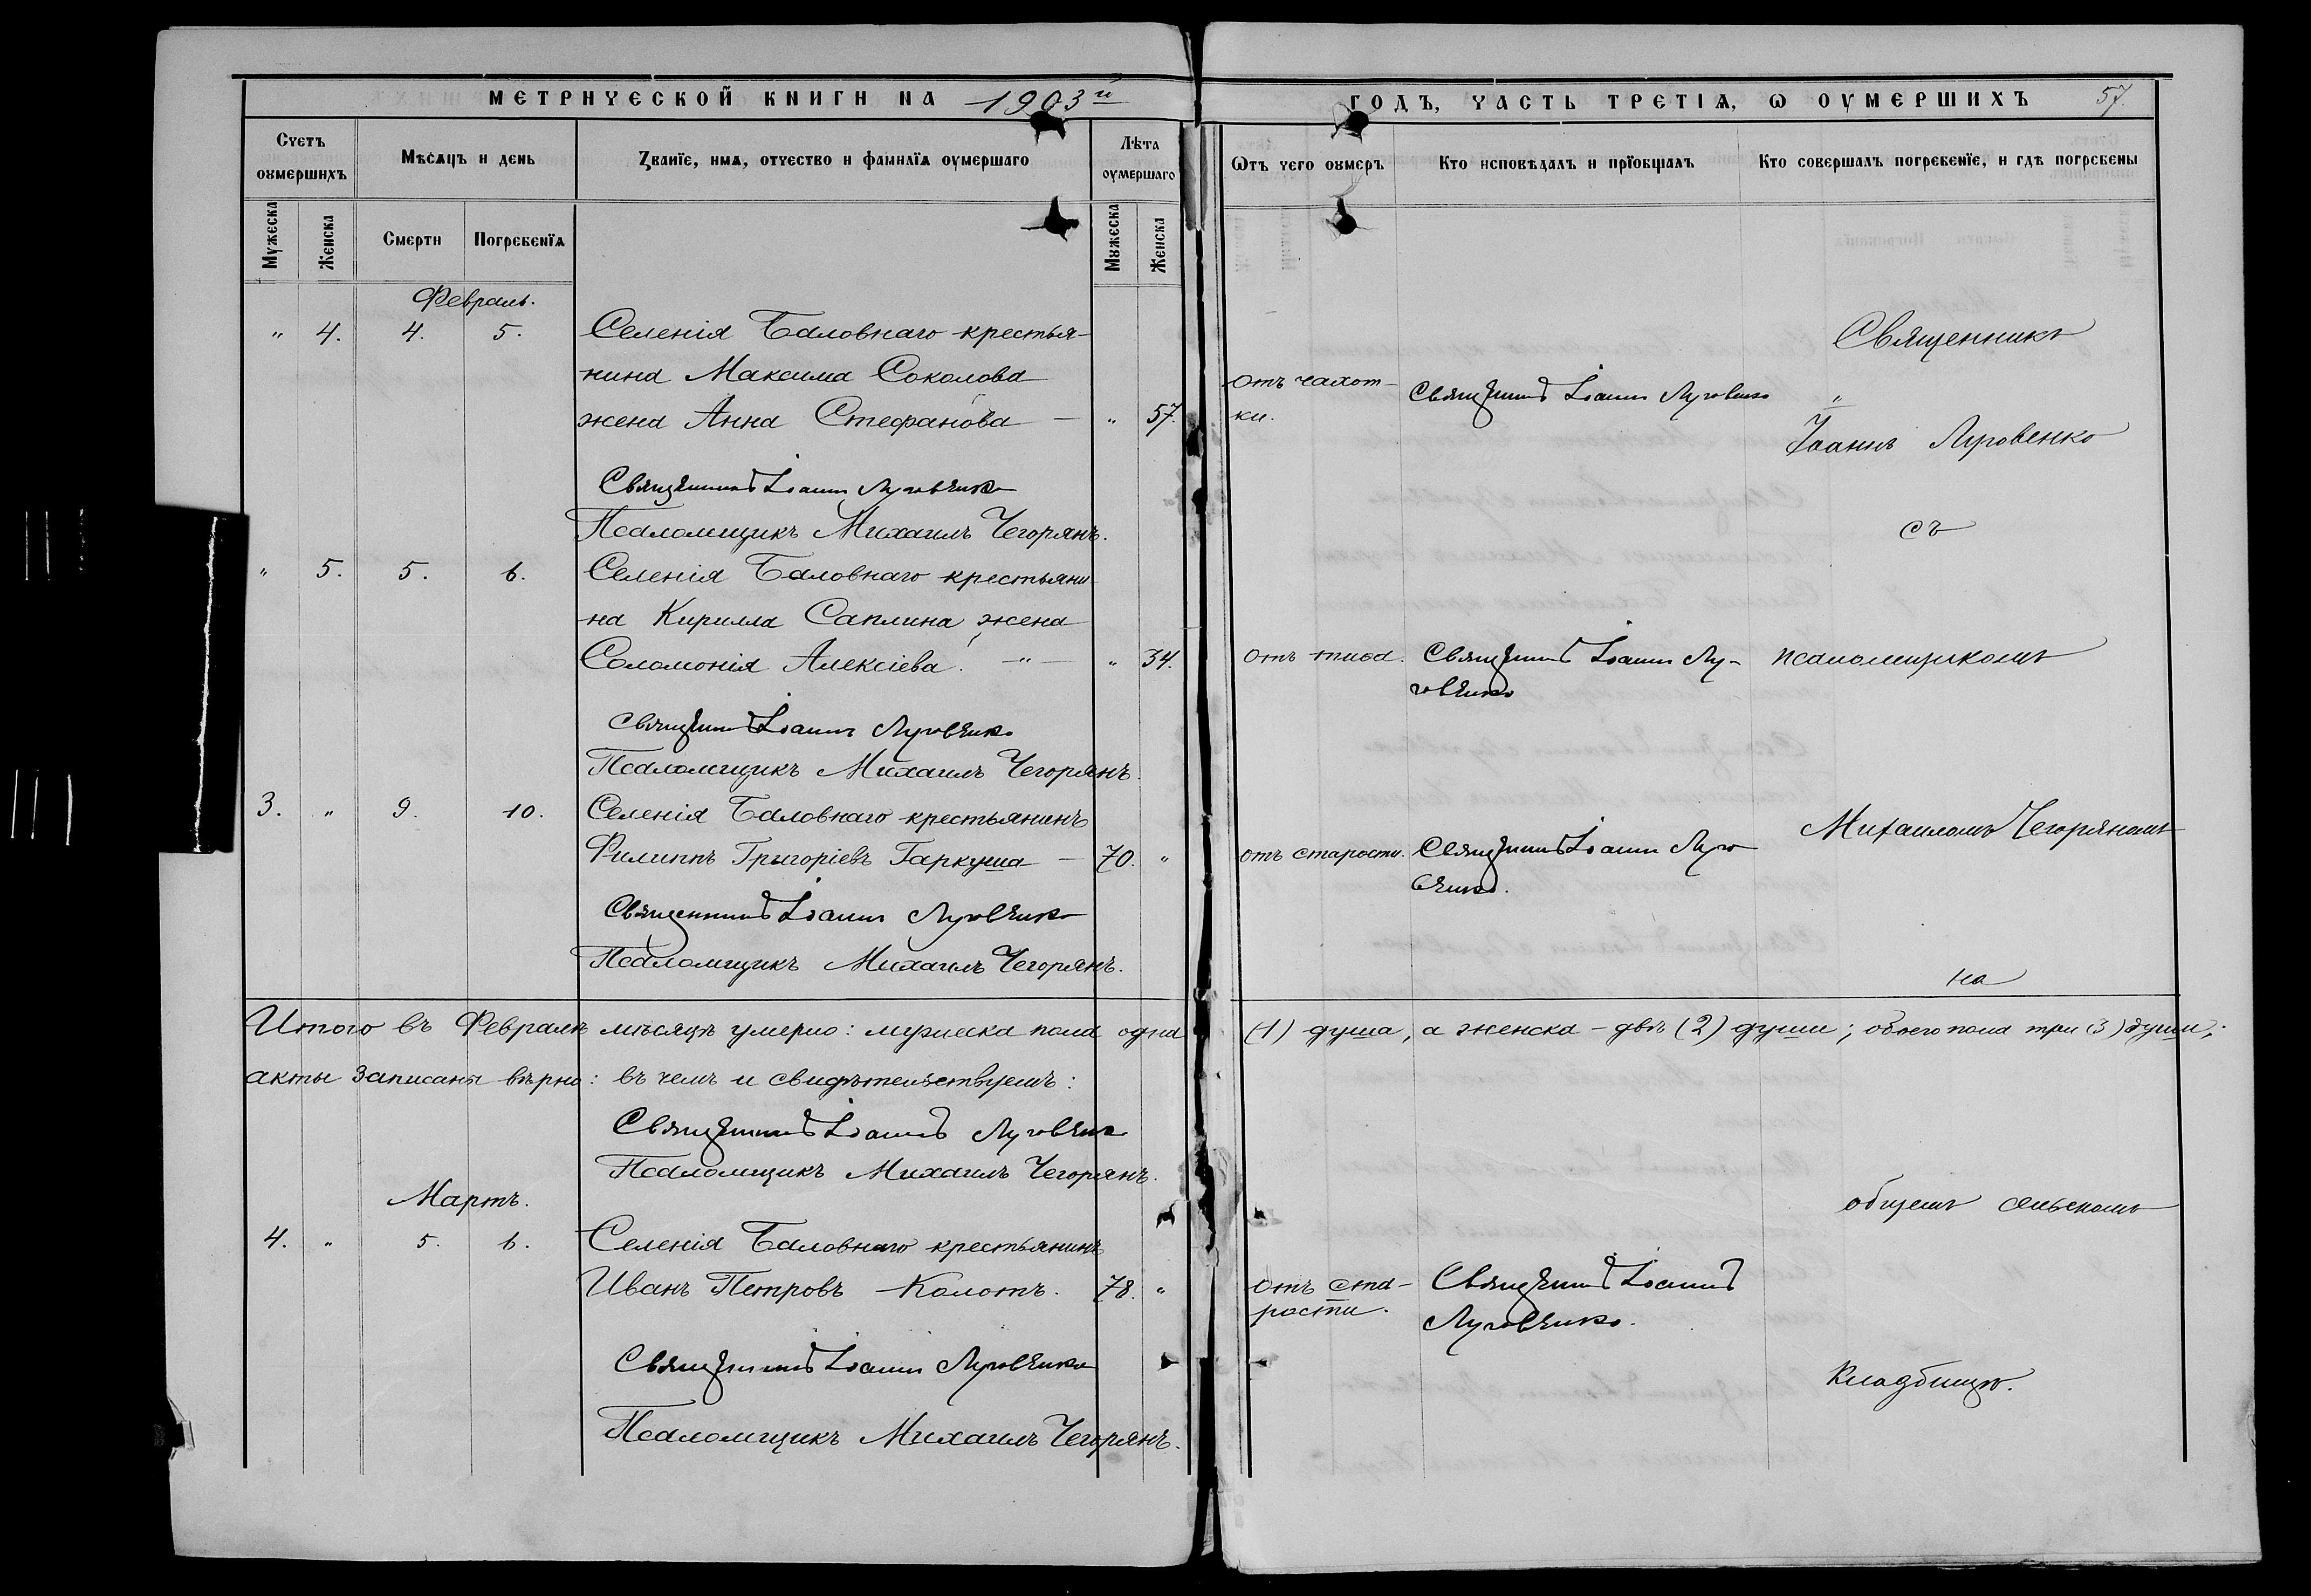 МЕТРИЧЕСКОЙ КНИГИ НА 1903й ГОДЪ, ЧАСТЬ ТРЕТІѦ, Ѡ ОУМЕРШИХЪ 57.
Счетъ оумершихъ
Мѣсѧцъ и день
Званїе, имѧ, отчество и фамилїѧ оумершаго
Лѣта оумершаго
Ѿтъ чего оумеръ
Кто исповѣдалъ и прїобщалъ
Кто совершалъ погребенїе, и гдѣ погребены
Мужеска
Женска
Смерти
Погребенїѧ
Мужеска
Женска
Февраль.
" 4. 4. 5. Селенія Баловнаго крестья-
нина Максима Соколова
жена Анна Стефанова — " 57.
отъ чахот-
ки.
Священникъ Іоаннъ Луговенко
Священникъ
"
Іоаннъ Луговенко
Священникъ Іоаннъ Луговенко
Псаломщикъ Михаилъ Чегорянъ.
съ
" 5. 5. 6. Селенія Баловнаго крестьяни
на Кирилла Саплина жена
Соломонія Алексіева. — " — " 34.
отъ тифа.
Священникъ Іоаннъ Лу-
говенко
псаломщикомъ
Священникъ Іоаннъ Луговенко
Псаломщикъ Михаилъ Чегорянъ.
3. " 9. 10. Селенія Баловнаго крестьянинъ
Филиппъ Григоріевъ Гаркуша — 70. "
отъ старости.
Священникъ Іоаннъ Луго
венко.
Михаиломъ Чегоряномъ
Священникъ Іоаннъ Луговенко
Псаломщикъ Михаилъ Чегорянъ.
на
Итого въ Февралѣ мѣсяцѣ умерло: мужеска пола одна (1) душа, а женска – двѣ (2) души; обоего пола три (3) души;
акты записаны вѣрно: въ чемъ и свидѣтельствуемъ:
Священникъ Іоаннъ Луговенко
Псаломщикъ Михаилъ Чегорянъ.
Мартъ.
общемъ сельскомъ
4. " 5. 6. Селенія Баловнаго крестьянинъ
Иванъ Петровъ Колотъ. 78. "
отъ ста-
рости.
Священникъ Іоаннъ
Луговенко.
Священникъ Іоаннъ Луговенко
кладбищѣ.
Псаломщикъ Михаилъ Чегорянъ.